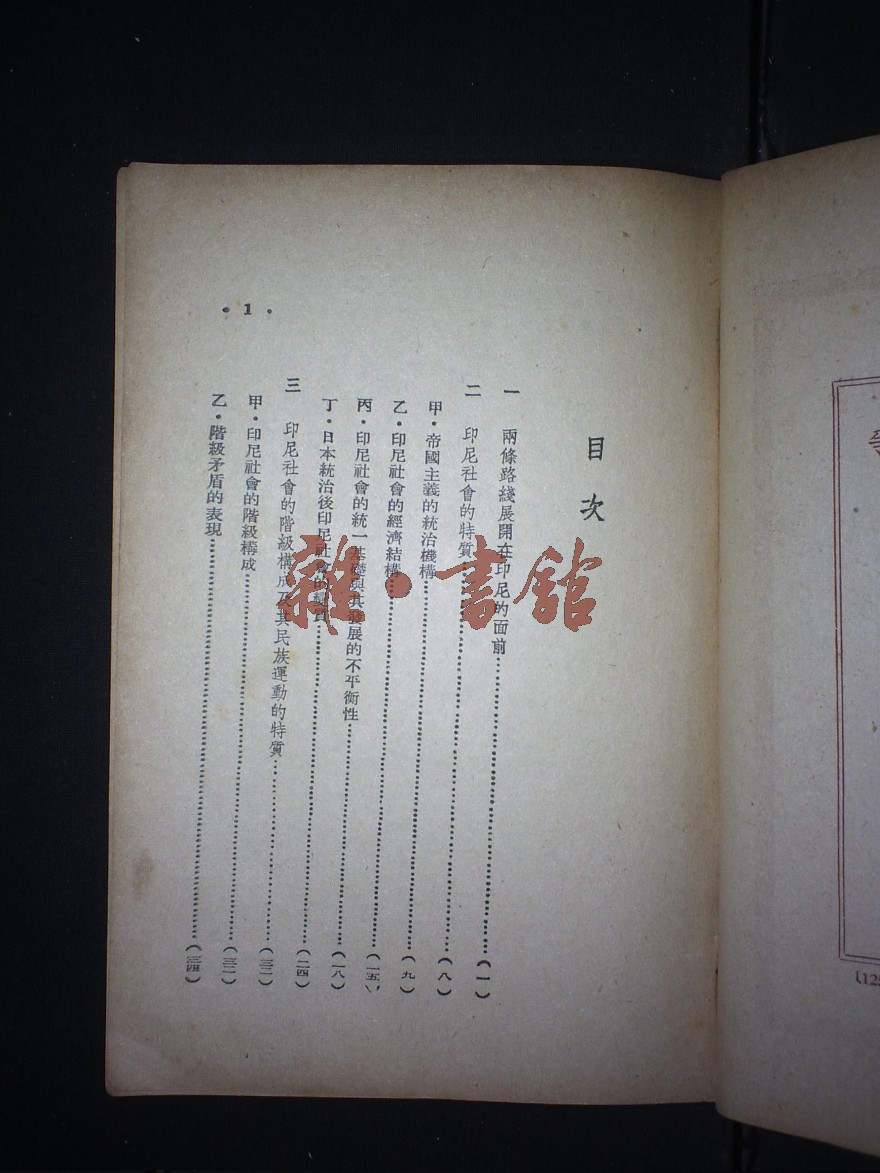 目次
一 兩條路綫展開在印尼的面前……(一)
二 印尼社會的特質……(八)
甲・帝國主義的統治機構……(九)
乙・印尼社會的經濟結構……(一五)
丙・印尼社會的統一基礎與其發展的不平衡性……(一八)
丁・日本統治後印尼社會的變質……(二四)
三 印尼社會的階級構成及其民族運動的特質……(三二)
甲・印尼社會的階級構成……(三二)
乙・階級矛盾的表現……(三四)
• 1 •
雜・書館